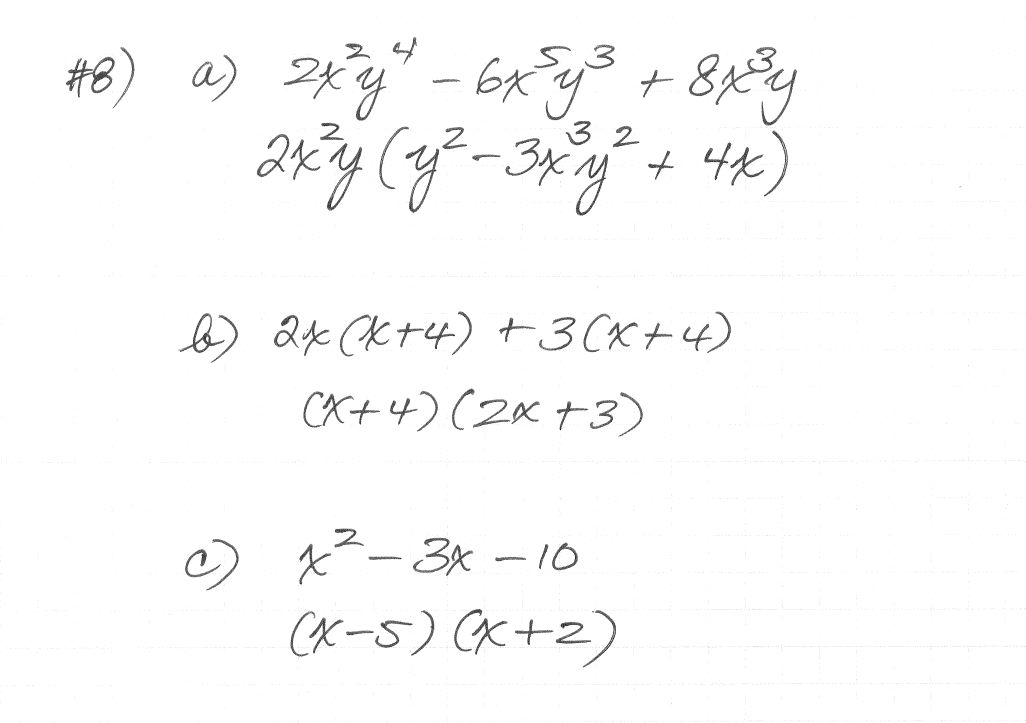 #8) a) 2x²y⁴ - 6x⁵y³ + 8x³y
2x²y (y² - 3x³y² + 4x)
b) 2x(x+4) + 3(x+4)
(x+4)(2x+3)
c) x² - 3x - 10
(x-5)(x+2)